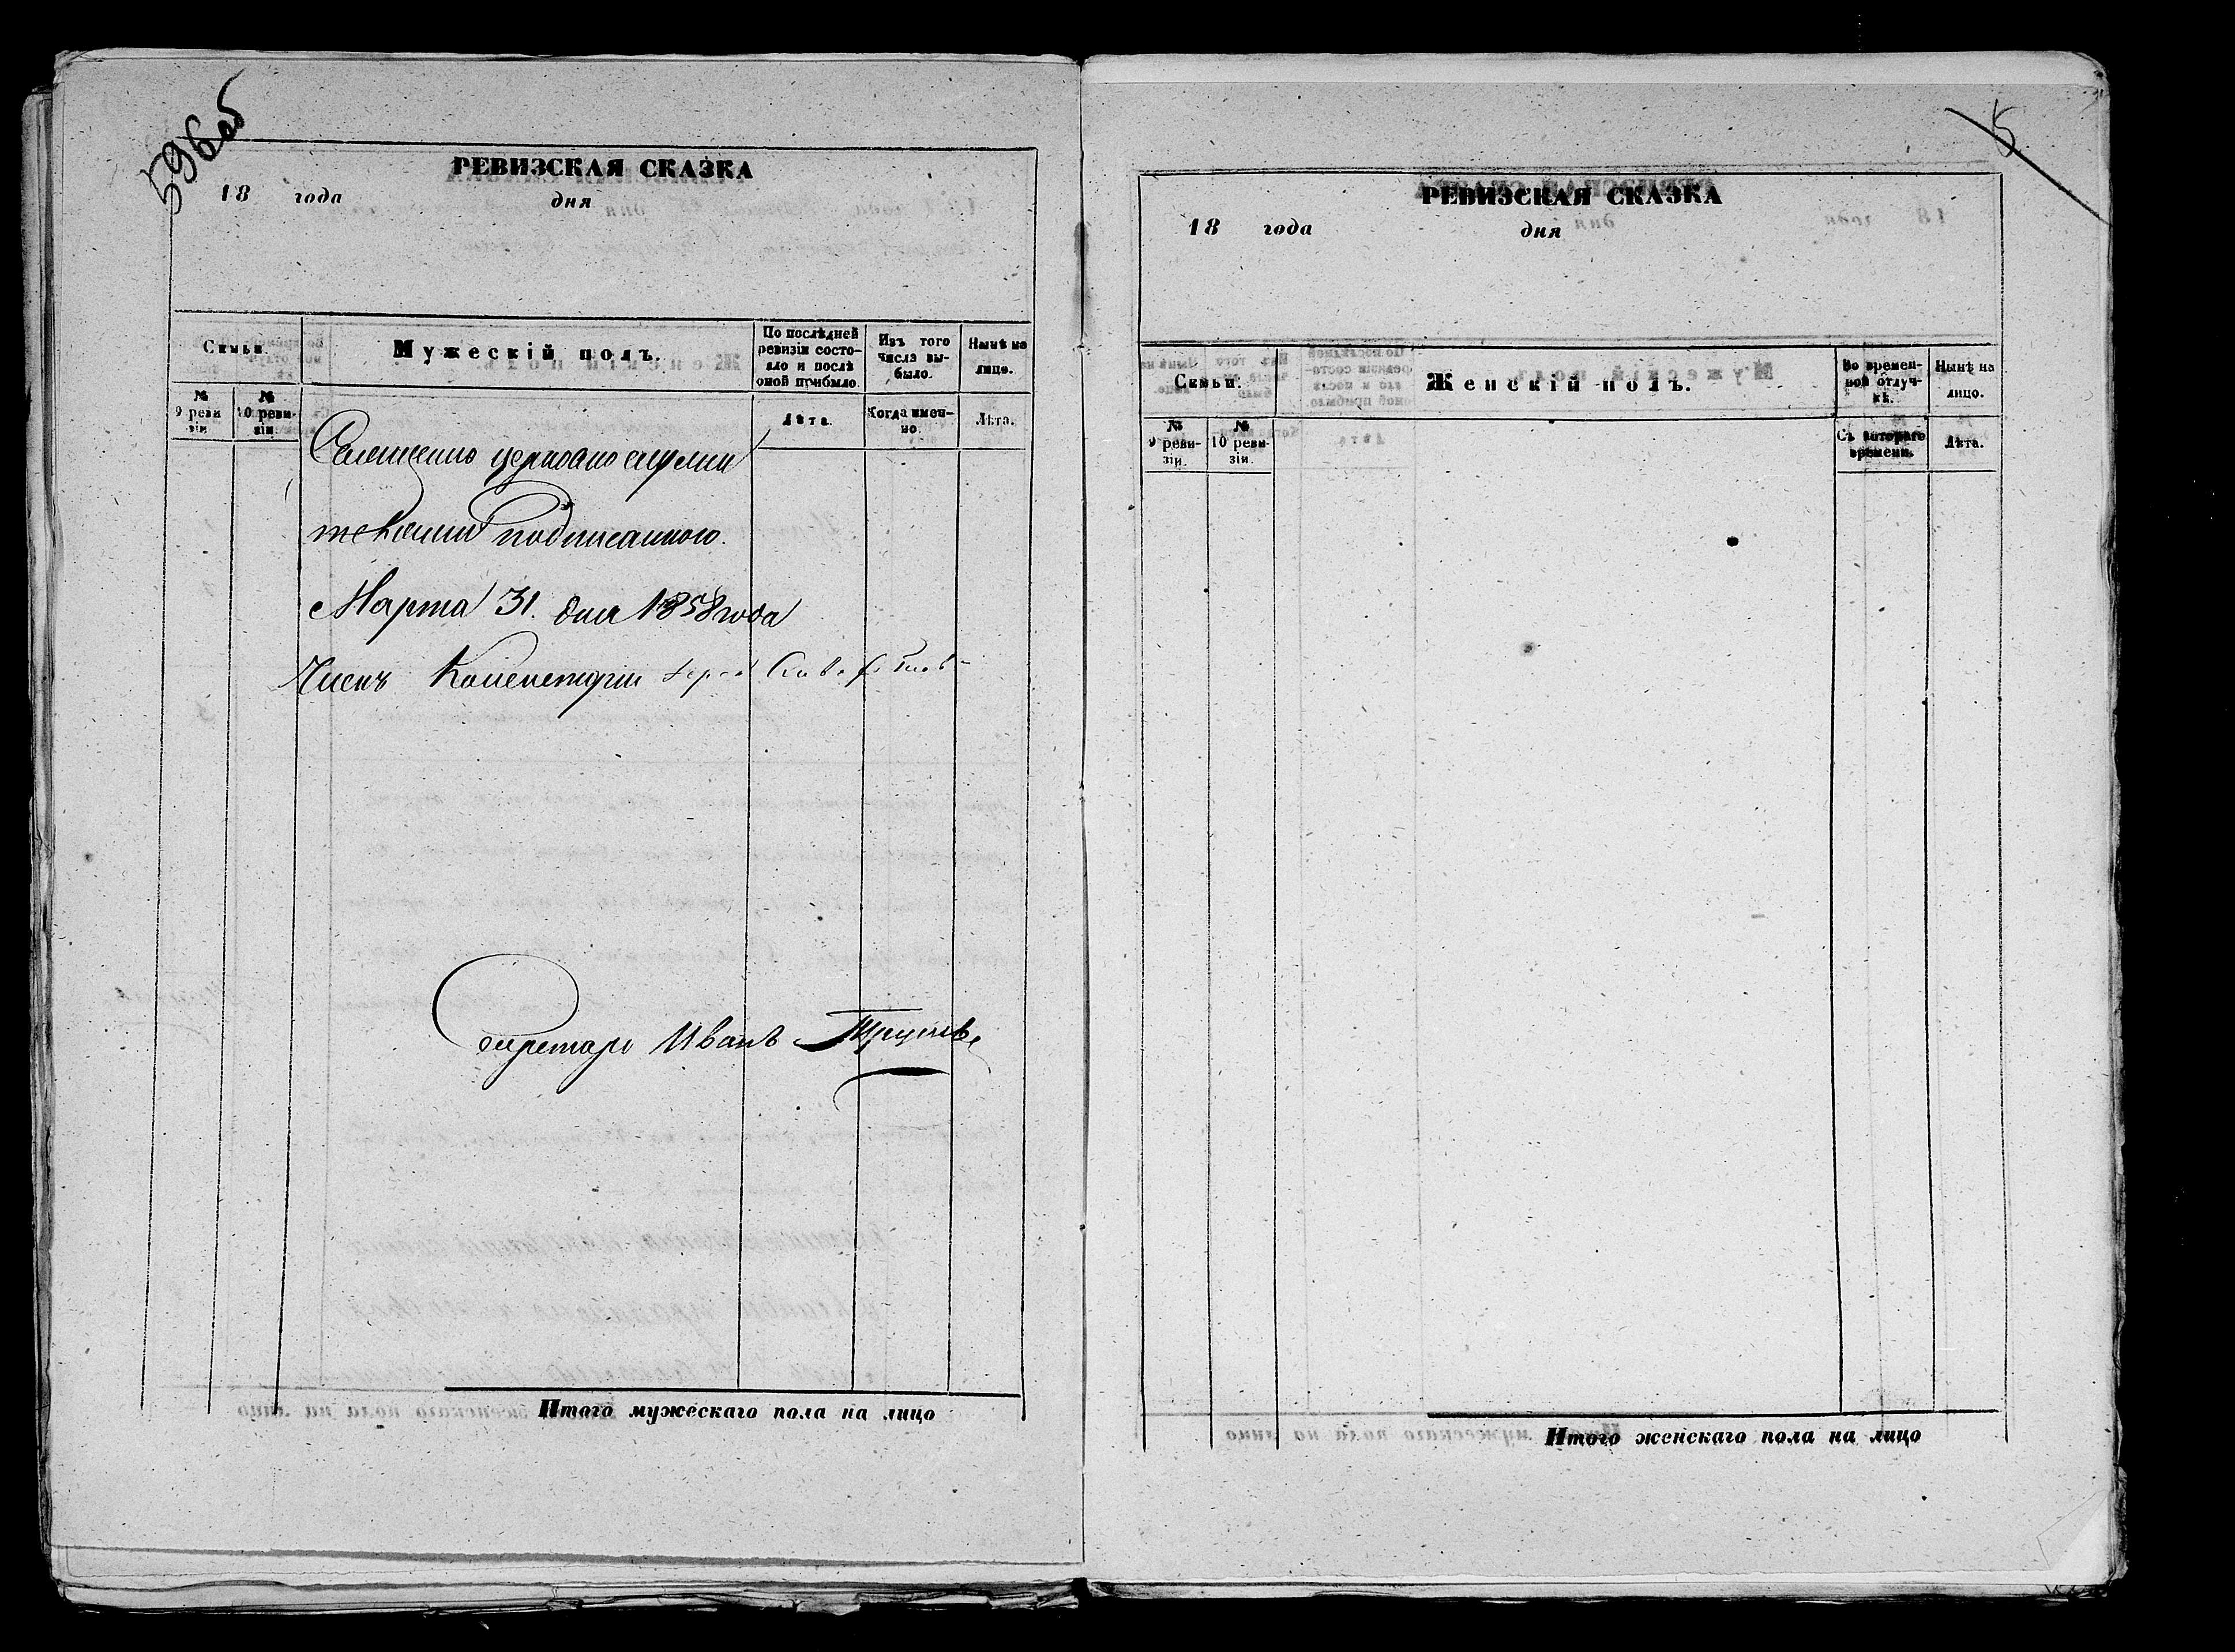 596об
РЕВИЗСКАЯ СКАЗКА
18 года дня
Семьи.
Мужескій полъ.
По послѣдней ревизіи состо-
яло и послѣ
оной прибыло.
Изъ того
числа вы-
было.
Нынѣ на
лицо.
№
9 реви
зіи
№
10 реви-
зіи
Лѣта.
Когда имен-
но.
Лѣта.
Священно церковно служи
подписанною
Марта 31. дня 1858 года
Членъ Консисторіи
Секретарь Иванъ
Итого мужескаго пола на лицо
5
РЕВИЗСКАЯ СКАЗКА
18 года дня
Семьи.
Женскій полъ.
Во времен-
ной отлуч-
кѣ.
Нынѣ на
лицо.
№
9 реви-
зіи.
№
10 реви-
зіи.
Съ котораго
времени.
Лѣта.
Итого женскаго пола на лицо